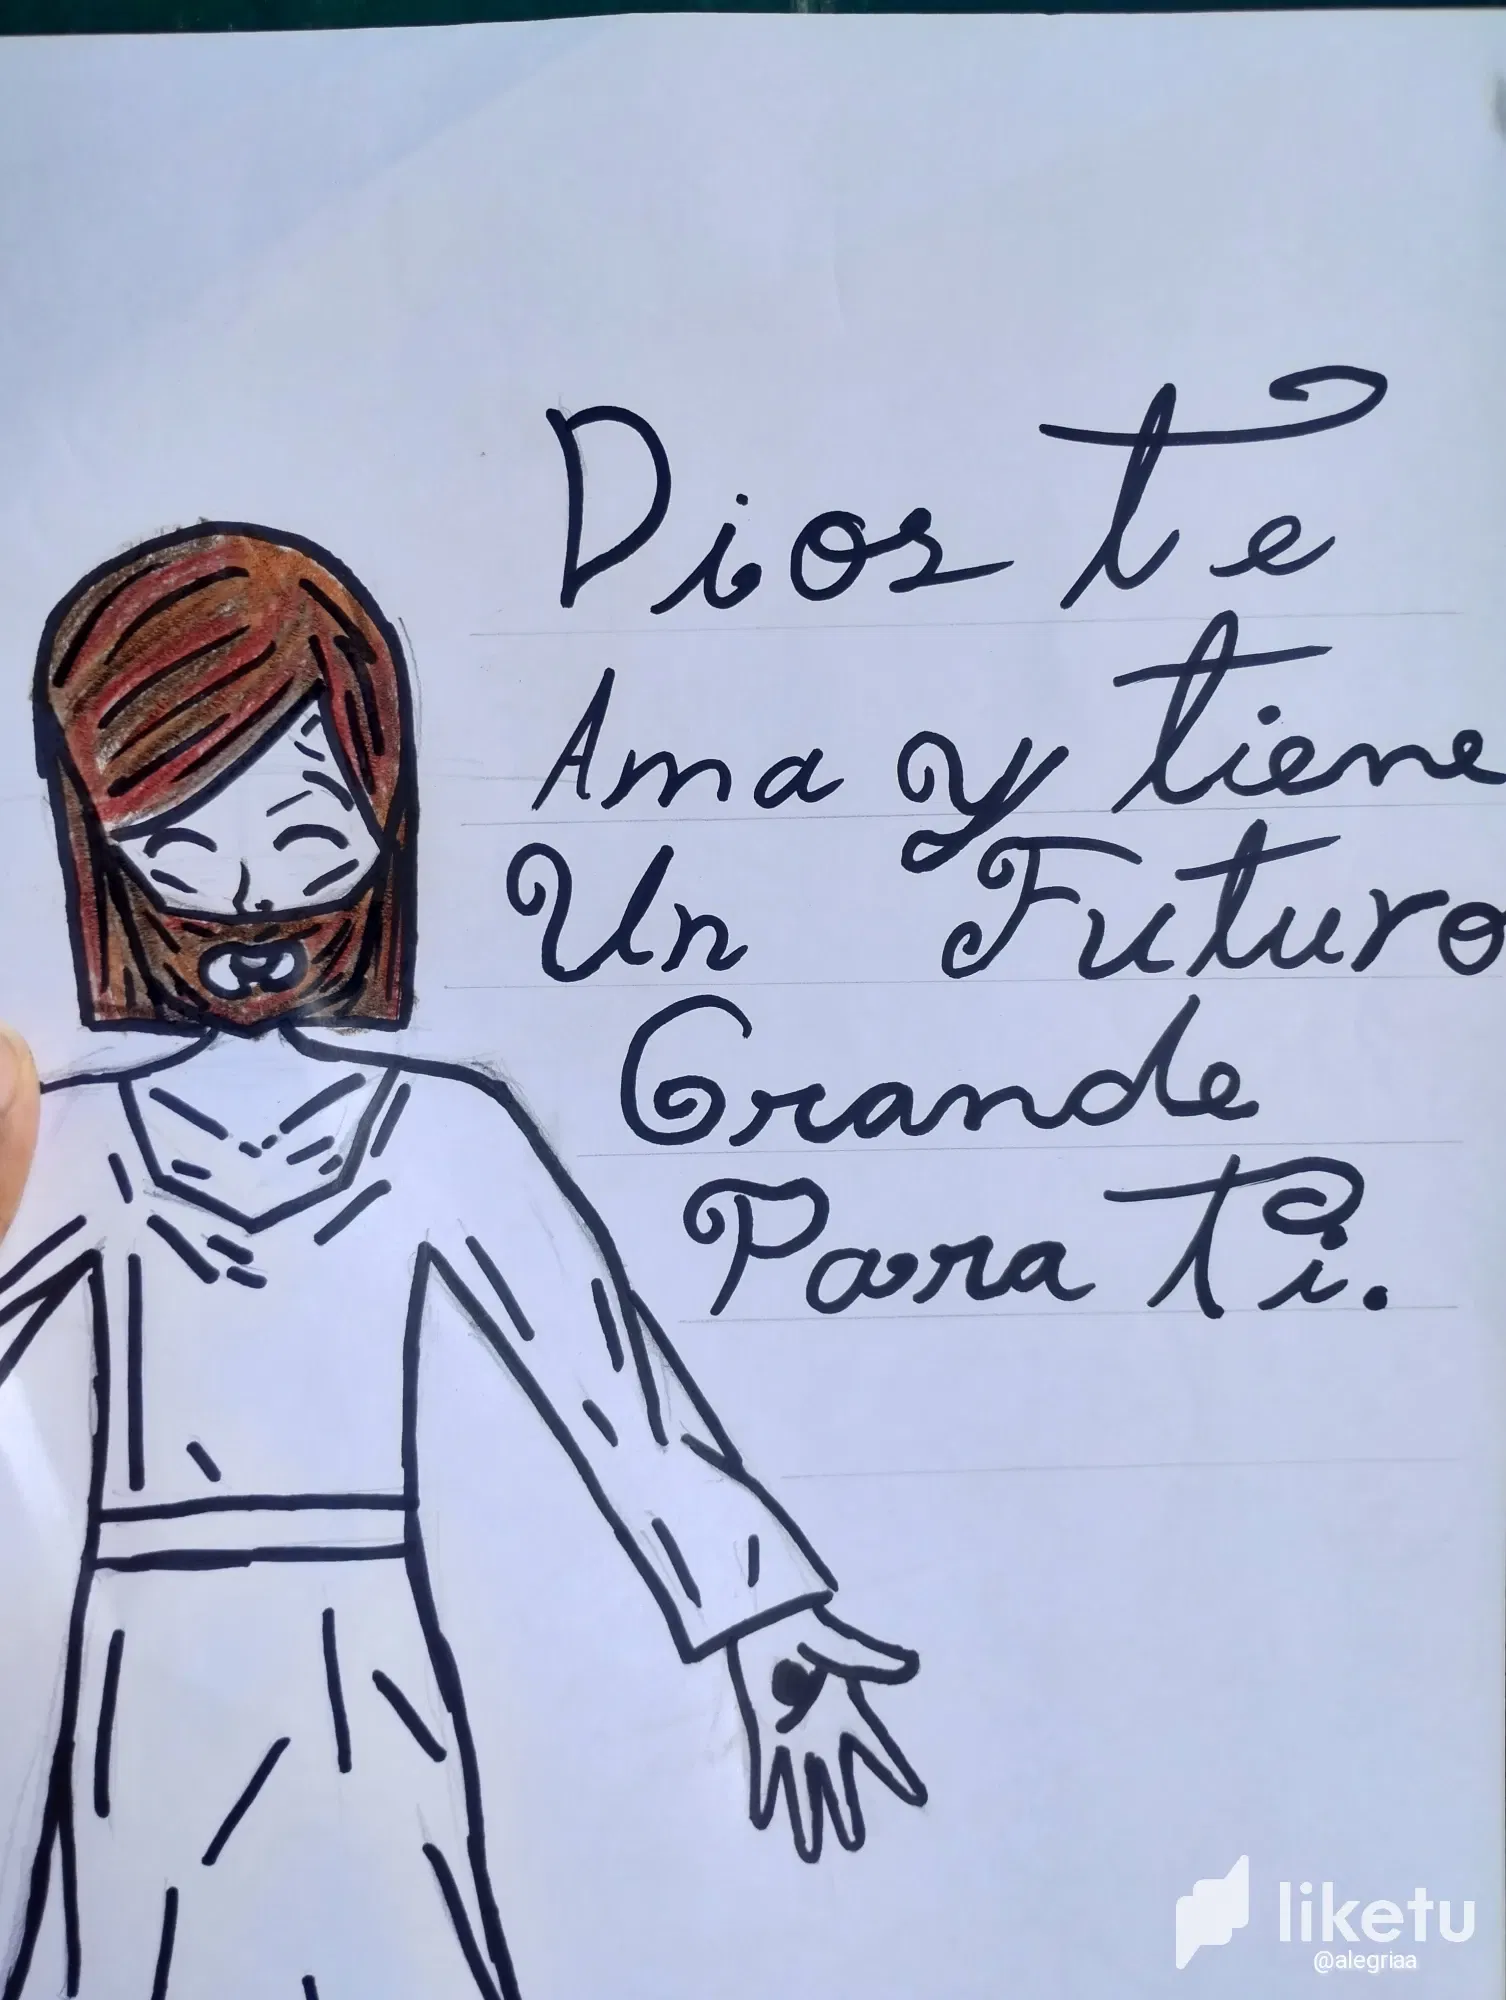 Dios te
Ama y tiene
Un Futuro
Grande
Para ti.
liketu
@alegriaa